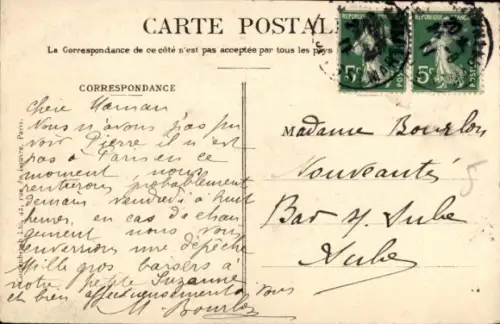 CARTE POSTALE
La Correspondance de ce côté n'est pas acceptée par tous les pays
REPUBLIQUE FRANÇAISE
5c
POSTES
REPUBLIQUE FRANÇAISE
5c
POSTES
CORRESPONDANCE
Chère Maman
Nous n'avons pas pu
voir Pierre il n'est
pas à Paris en ce
moment, nous
rentrerons probablement
demain vendredi à huit
heures, en cas de chan
gement nous vous
enverrions une dépêche
Mille gros baisers à
notre petite Suzanne
et bien affectueusement à vous
M. Bourlon
Madame Bourlon
Nouveautés
Bar s/ Aube
Aube
5